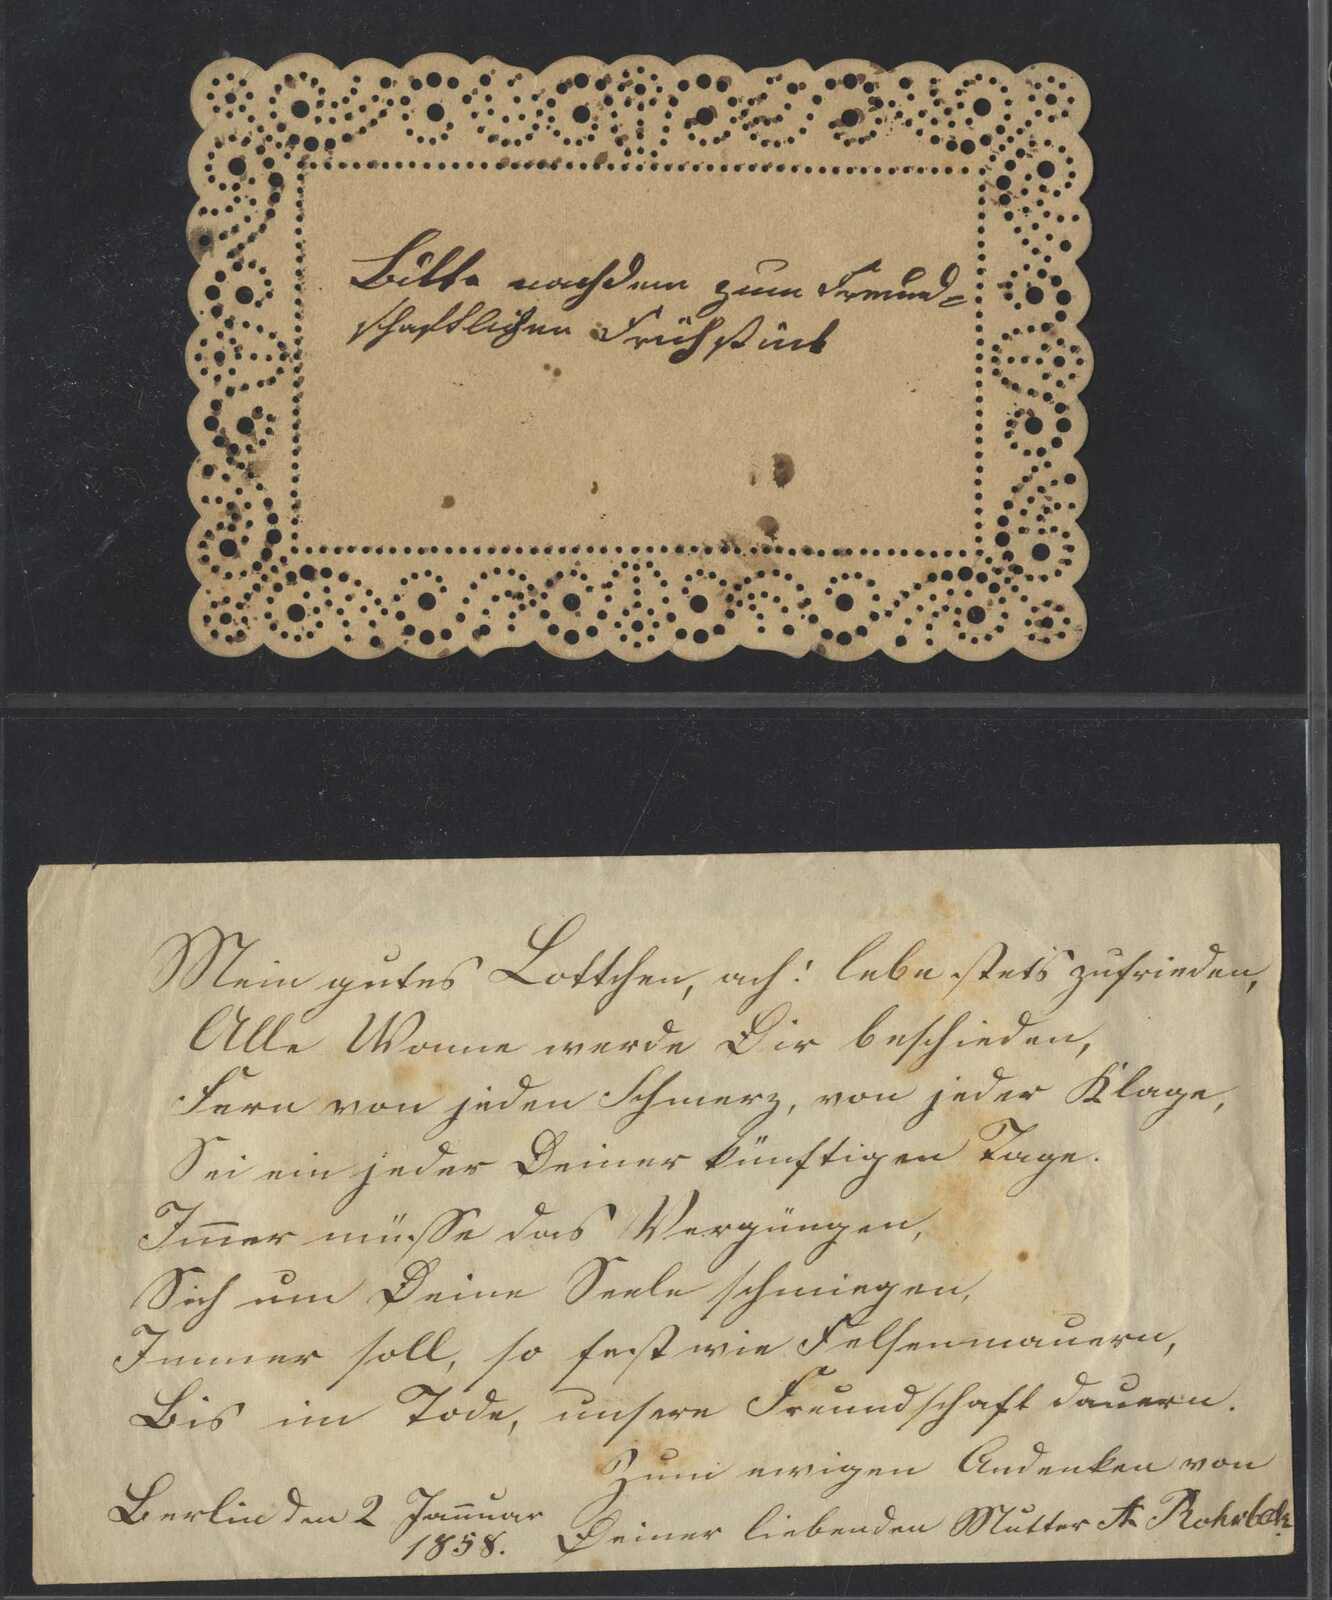 Bitte nachdem zum Freund=
schaftlichen Frühstück
Mein gutes Lottchen, ach! lebe stets zufrieden,
Alle Wonne werde Dir beschieden,
Fern von jeden Schmerz, von jeder Klage,
Sei ein jeder Deiner künftigen Tage.
Im̅er müsse das Vergüngen,
Sich um Deine Seele schmiegen,
Immer soll, so fest wie Felsenmauern,
Bis im Tode, unsere Freundschaft dauern.
Zum ewigen Andenken von
Berlin den 2 Jan̅uar
1858. Deiner liebenden Mutter A Rohrbeck